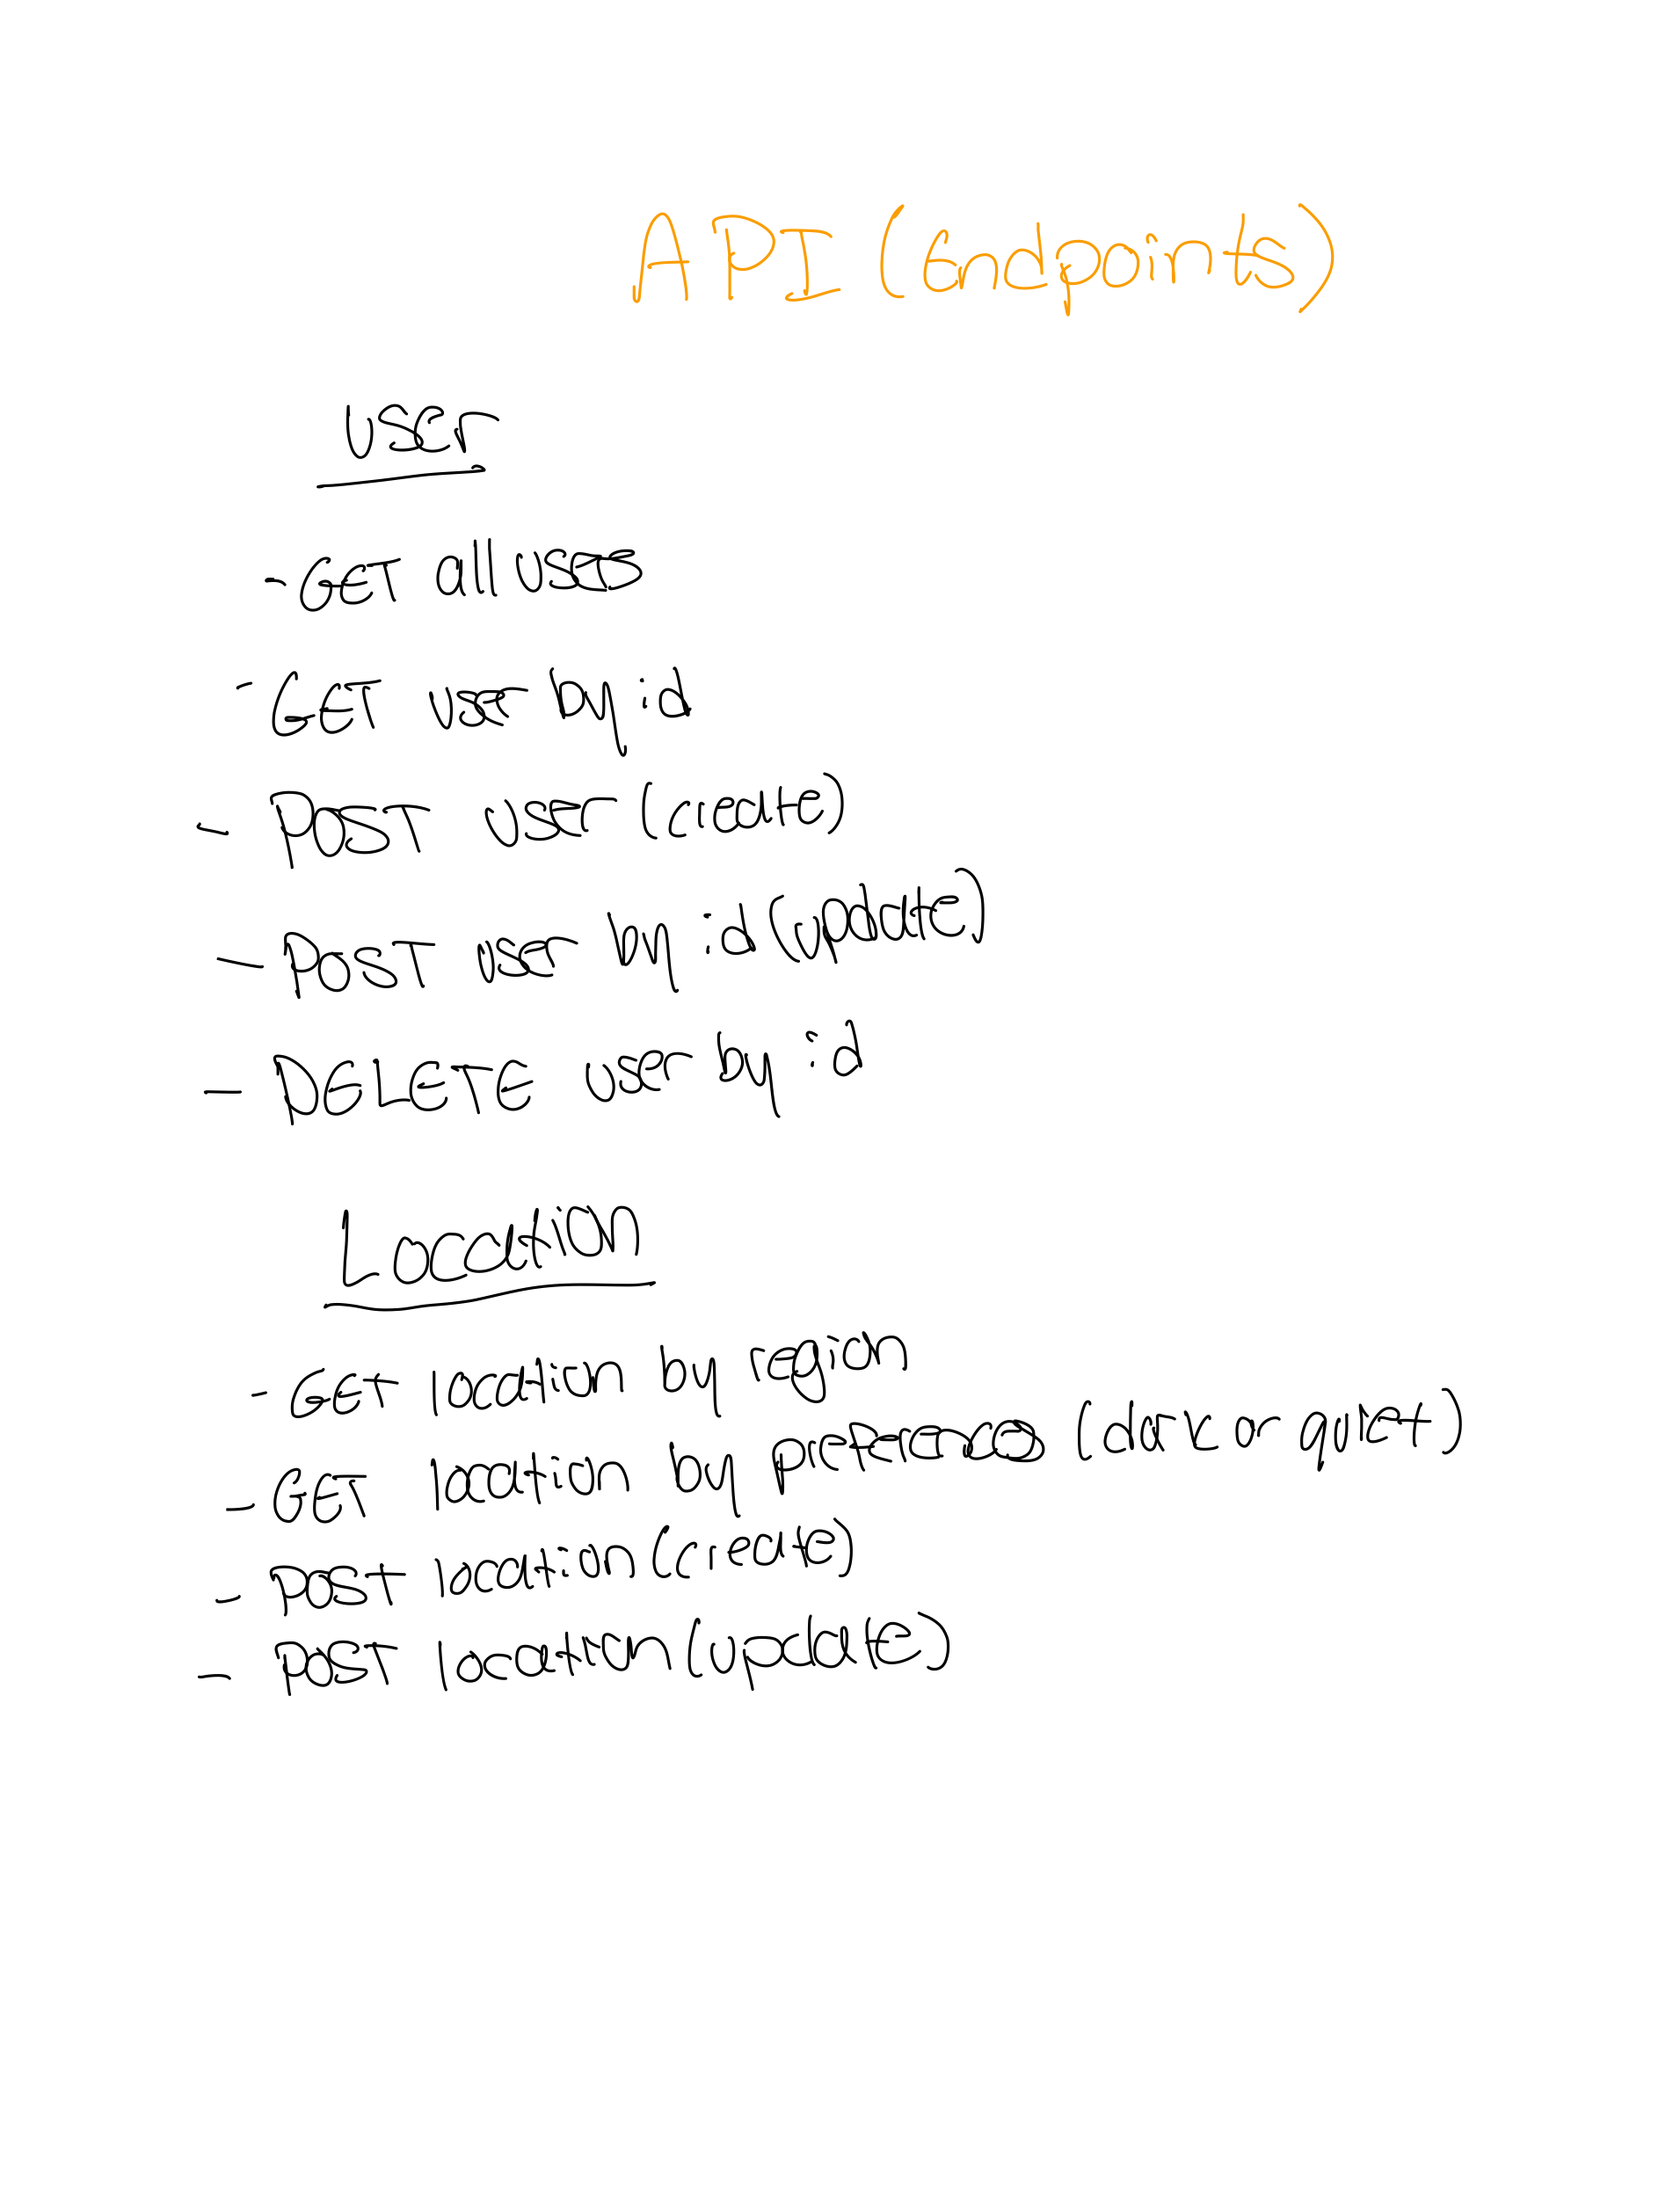 API (endpoints)
user
- GET all users
- GET user by id
- POST user (create)
- POST user by id (update)
- DELETE user by id
Location
- GET location by region
- GET location by preferences (datk or quiet)
- POST location (create)
- POST location (update)